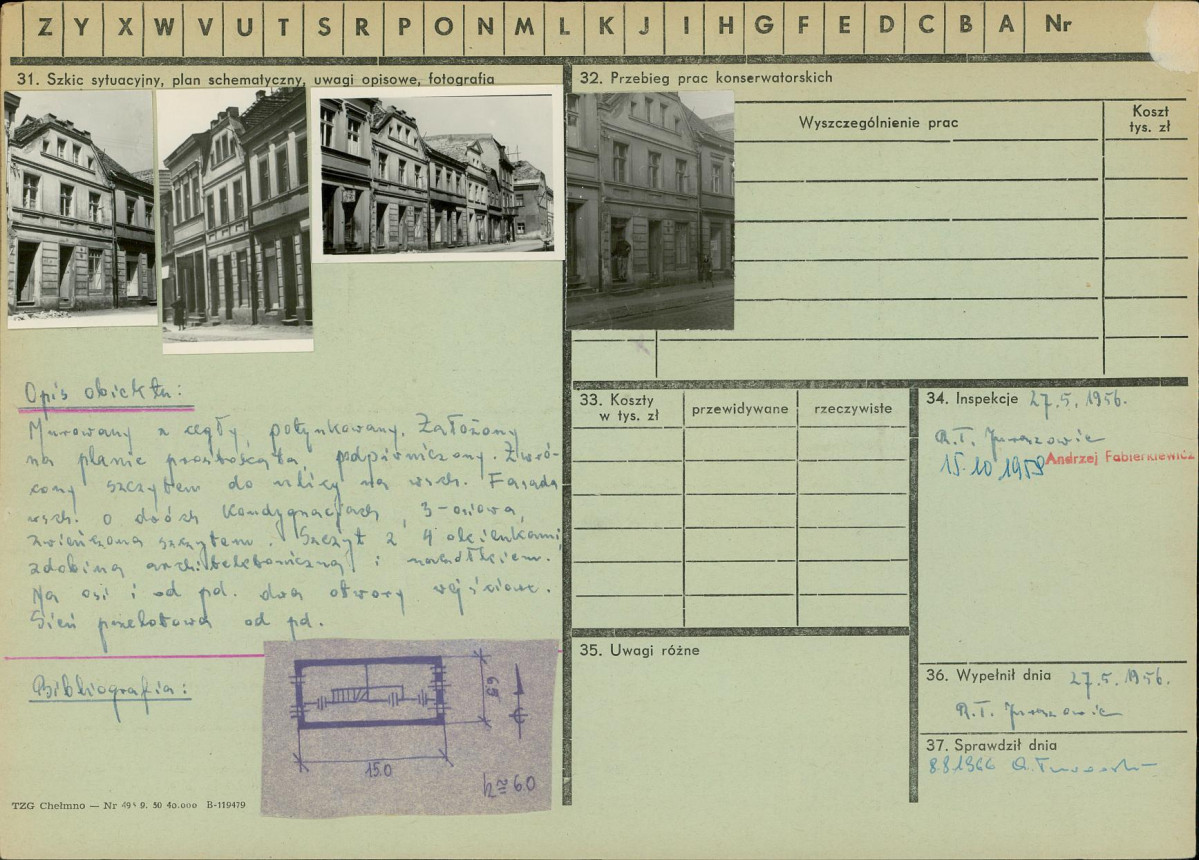 Z Y X W V U T S R P O N M L K J I H G F E D C B A Nr
31. Szkic sytuacyjny, plan schematyczny, uwagi opisowe, fotografia
Opis obiektu:
Murowany z cegły, potynkowany. Założony
na planie prostokąta, podpiwniczony. Zwró-
cony szczytem do ulicy na wsch. Fasada
wsch. o dwóch kondygnacjach, 3-osiowa,
zwieńczona szczytem. Szczyt z 4 okienkami
zdobiną architektoniczną i naczółkiem.
Na osi i od pd. dwa otwory wejściowe.
Sień przelotowa od pd.
Bibliografia:
15.0
h≈6.0
TZG Chełmno — Nr 49 9. 50 40.000 B-119479
32. Przebieg prac konserwatorskich
Wyszczególnienie prac
Koszt
tys. zł
33. Koszty
w tys. zł
przewidywane
rzeczywiste
34. Inspekcje 27.5.1956.
15.10 1959 Andrzej Fabierkiewicz
35. Uwagi różne
36. Wypełnił dnia 27.5.1956.
37. Sprawdził dnia
8.8.1966